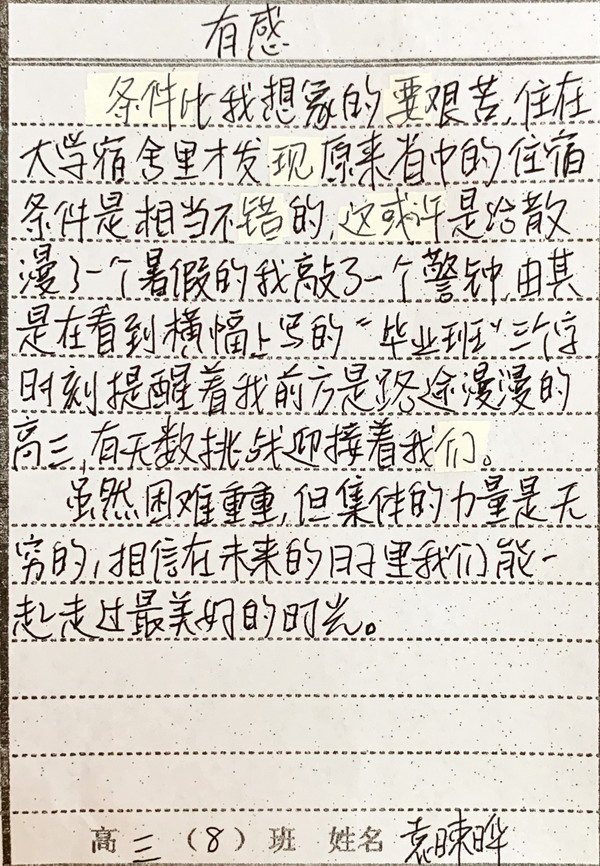 有感
条件比我想象的要艰苦,住在
大学宿舍里才发现原来省中的住宿
条件是相当不错的,这或许是给散
漫了一个暑假的我敲了一个警钟,由其
是在看到横幅上写的“毕业班”三个字
时刻提醒着我前方是路途漫漫的
高三,有无数挑战迎接着我们。
虽然困难重重,但集体的力量是无
穷的,相信在未来的日子里我们能一
起走过最美好的时光。
高三(8)班 姓名 袁晔